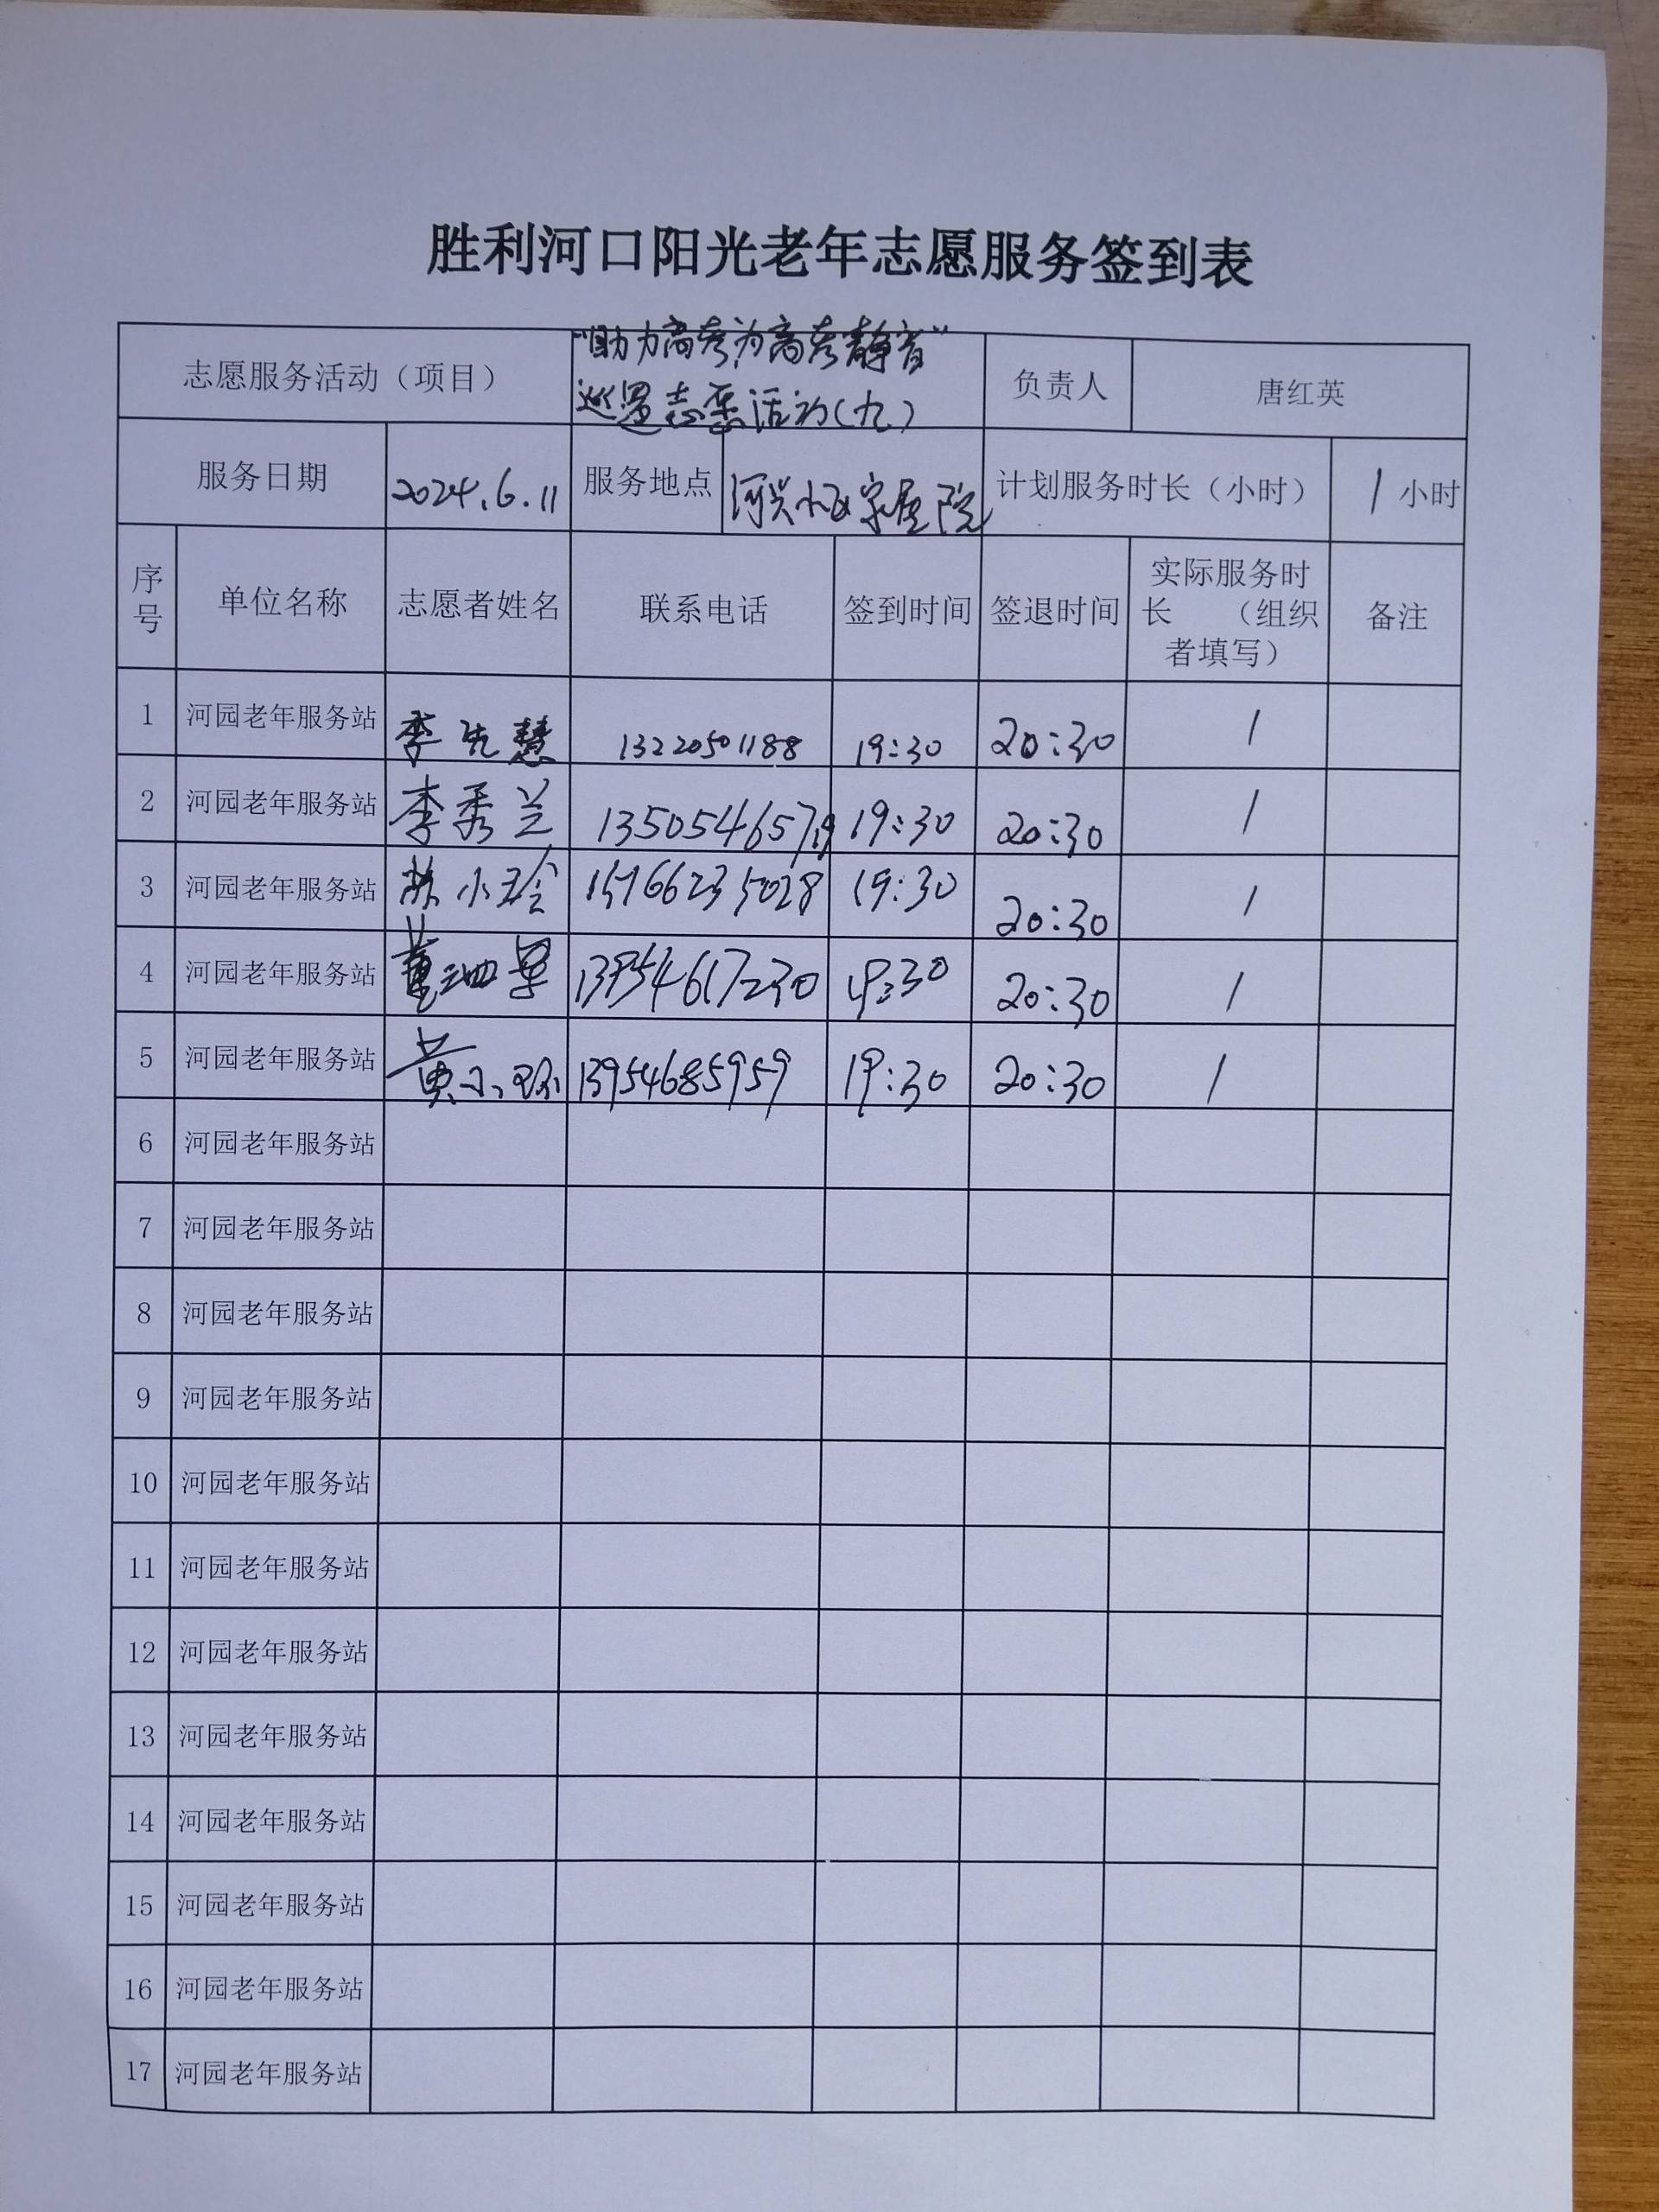 胜利河口阳光老年志愿服务签到表
志愿服务活动（项目） “助力高考,为高考静音” 负责人 唐红英
巡逻志愿活动(九)
服务日期 2024.6.11 服务地点 河兴小区家属院 计划服务时长（小时） 1小时
序号 单位名称 志愿者姓名 联系电话 签到时间 签退时间 实际服务时长 （组织者填写） 备注
1 河园老年服务站 李先慧 13220501188 19:30 20:30 1
2 河园老年服务站 李秀兰 19:30 20:30 1
3 河园老年服务站 小玲 19:30 20:30 1
4 河园老年服务站 董 13954617230 19:30 20:30 1
5 河园老年服务站 黄小环 13954685959 19:30 20:30 1
6 河园老年服务站
7 河园老年服务站
8 河园老年服务站
9 河园老年服务站
10 河园老年服务站
11 河园老年服务站
12 河园老年服务站
13 河园老年服务站
14 河园老年服务站
15 河园老年服务站
16 河园老年服务站
17 河园老年服务站